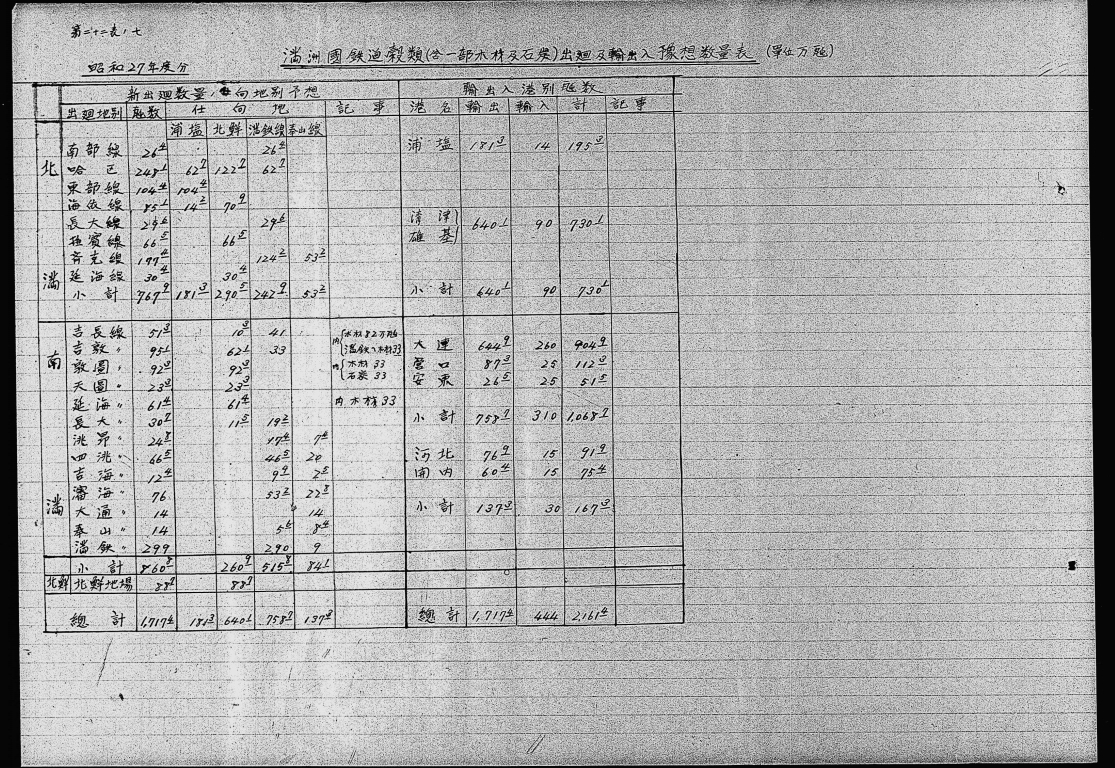 第二十二表ノ七
満洲國鉄道穀類(含一部木材及石炭)出廻及輸出入豫想数量表 (單位万瓲)
昭和27年度分
新出廻数量,仕向地別予想 輸出入港別瓲数
出廻地別 瓲数 仕向地 記事 港名 輸出 輸入 計 記事
浦塩 北鮮 満鉄線 奉山線
北満
南部線 26.4 26.4 浦塩 181.3 14 195.3
哈 248.1 62.7 122.7 62.7
東部線 104.4 104.4
海依線 85.1 14.2 70.9
長大線 29.6 29.6 清津 雄基 640.1 90 730.1
拉賓線 66.5 66.5
斉克線 177.4 124.2 53.2
延海線 30.4 30.4
小計 767.9 181.3 290.5 242.9 53.2 小計 640.1 90 730.1
南満
吉長線 51.3 10.3 41 内 木材82万瓲
吉敦〃 95.1 62.1 33 満鉄ヘ木材33 大連 644.9 260 904.9
敦圖〃 92.3 92.3 内 木材33 石炭33 營口 87.3 25 112.3
天圖〃 23.3 23.3 安東 26.5 25 51.5
延海〃 61.4 61.4 内木材33
長大〃 30.7 11.5 19.2 小計 758.7 310 1,068.7
洮昂〃 24.8 17.4 7.4
四洮〃 66.5 46.5 20 河北 76.9 15 91.9
吉海〃 12.4 9.9 2.5 関内 60.4 15 75.4
瀋海〃 76 53.2 22.8
大通〃 14 14 小計 137.3 30 167.3
奉山〃 14 5.6 8.4
満鉄〃 299 290 9
小計 860.8 260.9 515.8 84.1
北鮮 北鮮地場 88.7 88.7
總計 1,717.4 181.3 640.1 758.7 137.3 總計 1,717.4 444 2,161.4